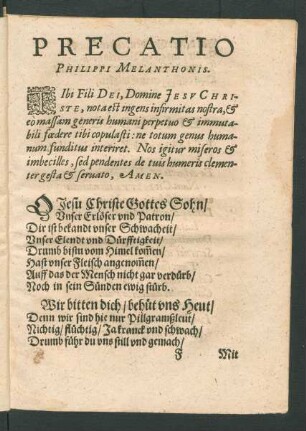 PRECATIO
PHILIPPI MELANTHONIS.
TIbi Fili DEI, Domine JESV CHRI-
STE, nota est ingens infirmitas nostra, &
eo massam generis humani perpetuo & immuta-
bili fœdere tibi copulasti: ne totum genus huma-
num funditus interiret. Nos igitur miseros &
imbecilles, sed pendentes de tuis humeris clemen-
ter gesta & servato, AMEN.
O Jesu Christe Gottes Sohn/
Vnser Erlöser vnd Patron/
Dir ist bekandt vnser Schwacheit/
Vnser Elendt vnd Dürfftigkeit/
Drumb bistu vom Himel komẽn/
Hast vnser Fleisch angenom̃en/
Auff das der Mensch nicht gar verdürb/
Noch in sein Sünden ewig stürb.
Wir bitten dich/ behüt vns Heut/
Denn wir sind hie nur Pillgramßleut/
Nichtig/ flüchtig/ Ja kranck vnd schwach/
Drumb führ du vns still vnd gemach/
F Mit